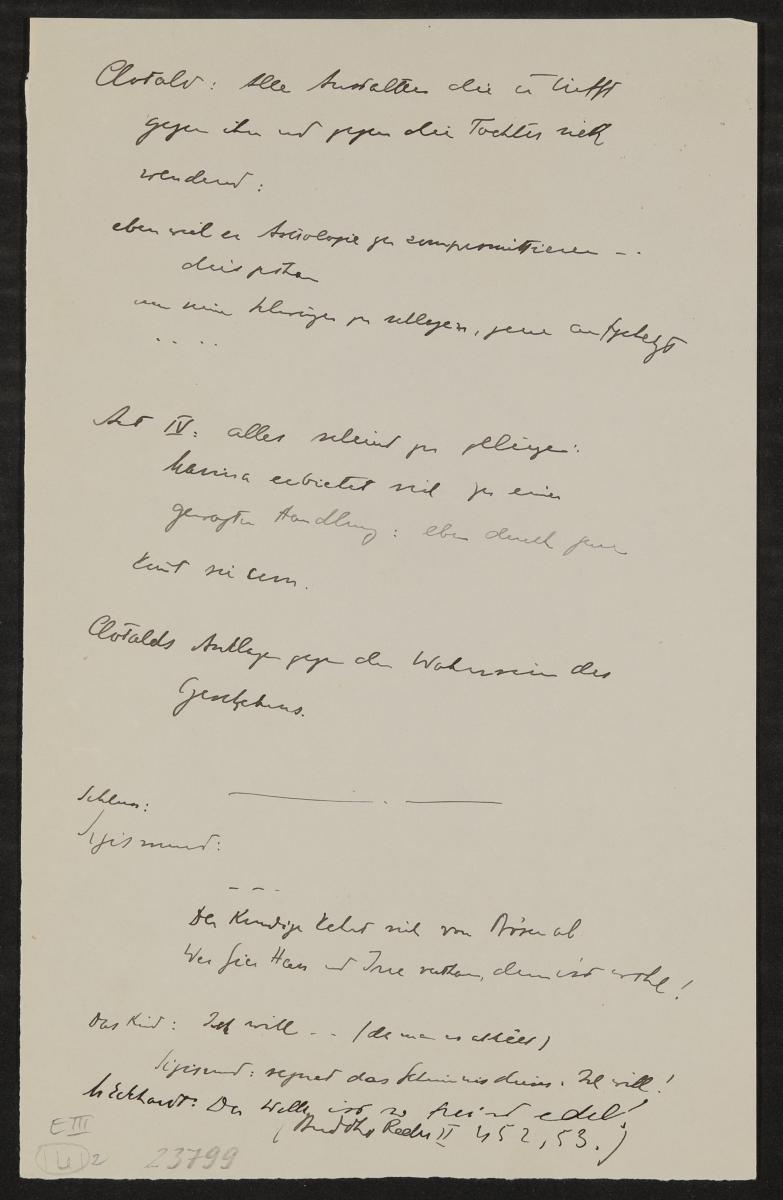 Clotald: Alle Anstalten die er trifft
gegen ihn und gegen die Tochter sich
wendend:
eben weil er Astrologie zu compromittieren –.
dies getan
um seine zu schlagen, jene aufgehetzt
. . . .
Act IV: alles scheint zu gelingen:
erbietet sich zu einer
gewagten Handlung: eben durch jene
kommt sie um.
Clotalds Anklage gegen den Wahnsinn des
Geschehens.
Schluss:
Sigismund:
– – –
Der Kundige kehrt sich vom Bösen ab
Wer Gier Hass und Irre verthan, dem ist wohl!
Das Kind: Ich will – – (da man es)
Sigismund: segnet das Geheimnis dieses: Ich will!
M Eckhardt: Der Wille ist so frei und edel!
(Buddho Reden II 452, 53.)
E III
2
23799